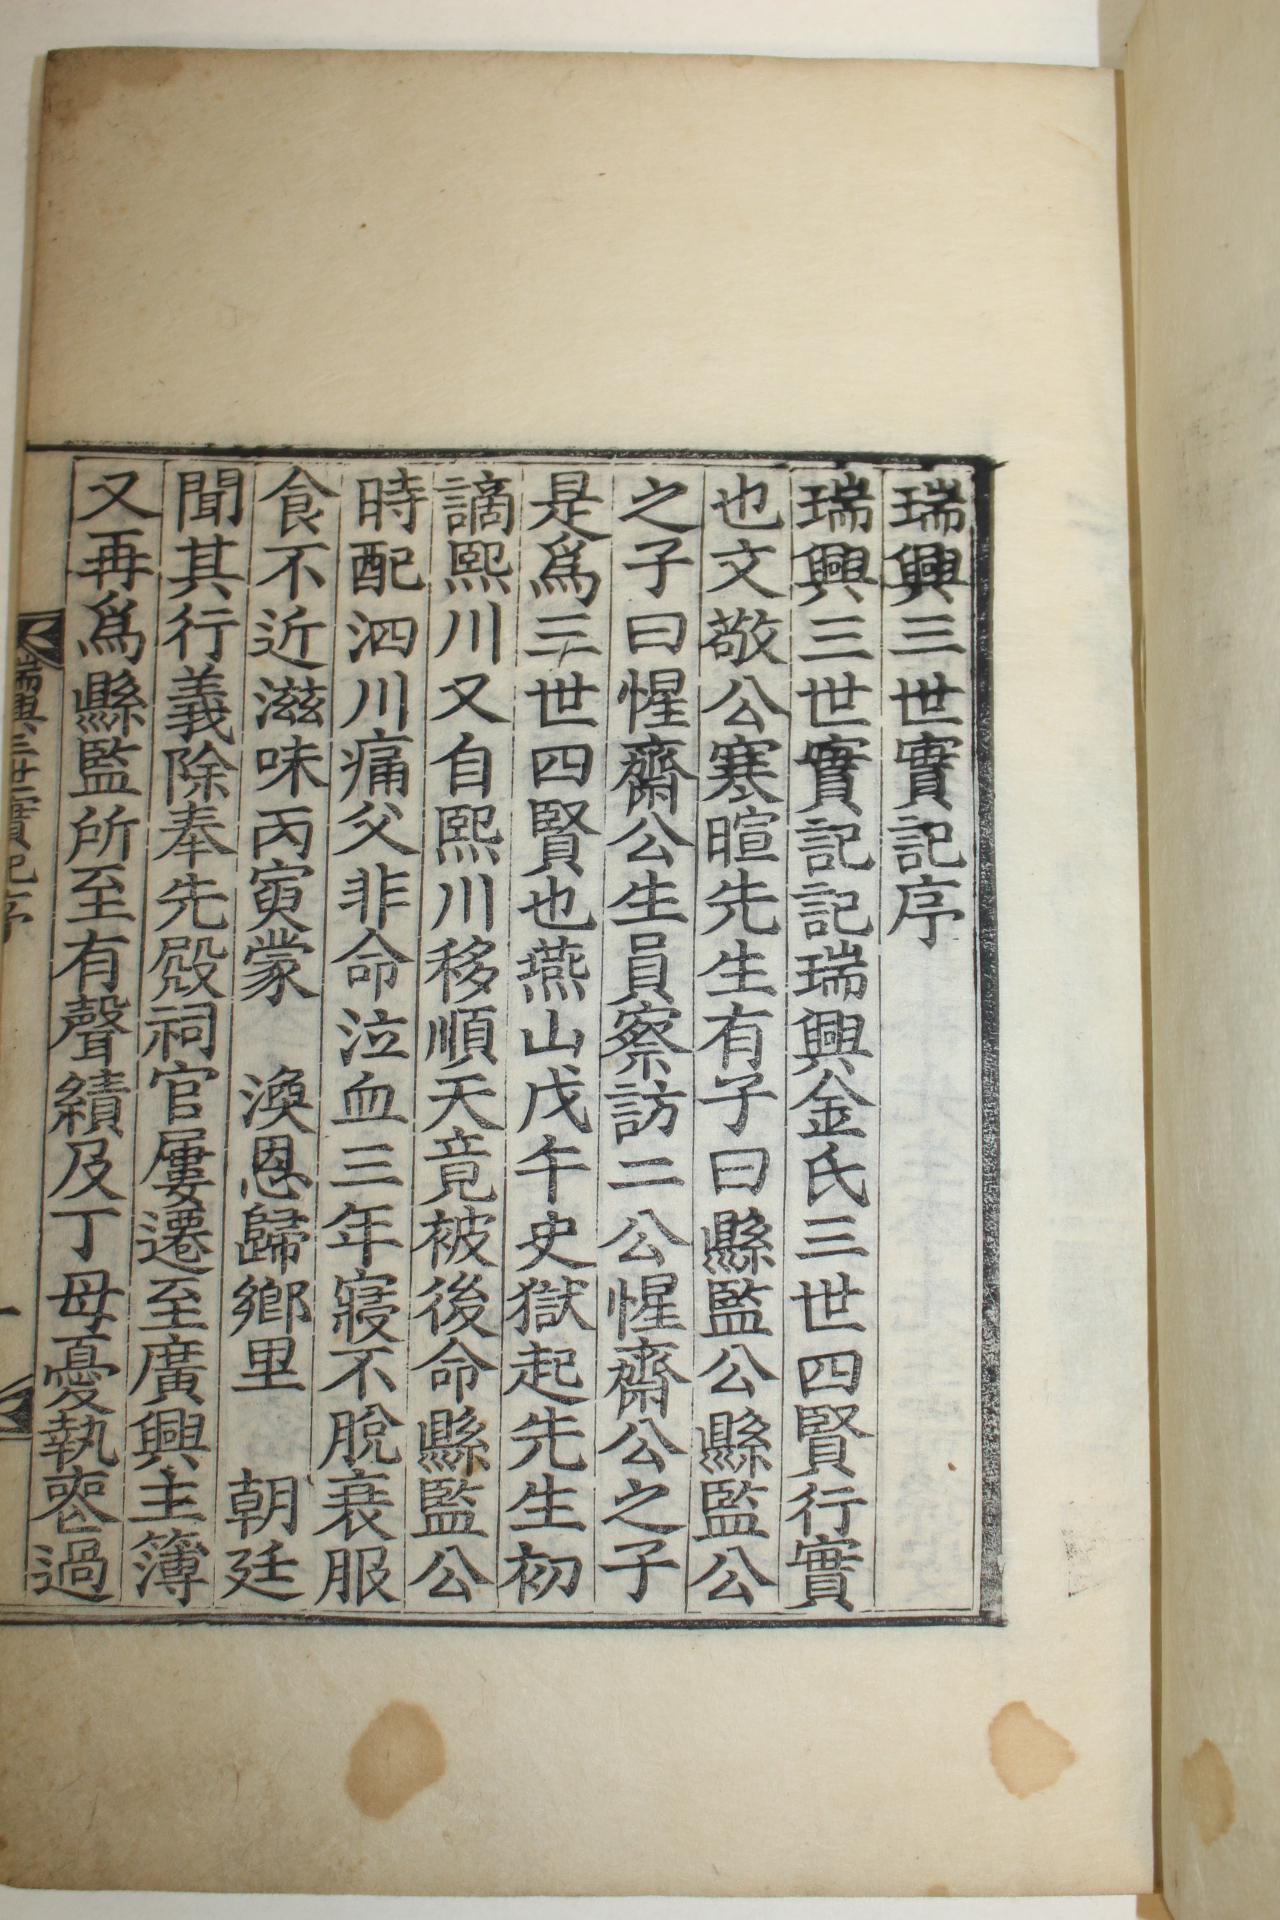 瑞興三世實記序
瑞興三世實記記瑞興金氏三世四賢行實
也文敬公寒暄先生有子曰縣監公縣監公
之子曰惺齋公生員察訪二公惺齋公之子
是爲三世四賢也燕山戊午史獄起先生初
謫熙川又自熙川移順天竟被後命縣監公
時配泗川痛父非命泣血三年寢不脫衰服
食不近滋味丙寅蒙　渙恩歸鄉里　朝廷
聞其行義除奉先殿祠官屢遷至廣興主簿
又再爲縣監所至有聲績及丁母憂執喪過
瑞興三世實記序
一